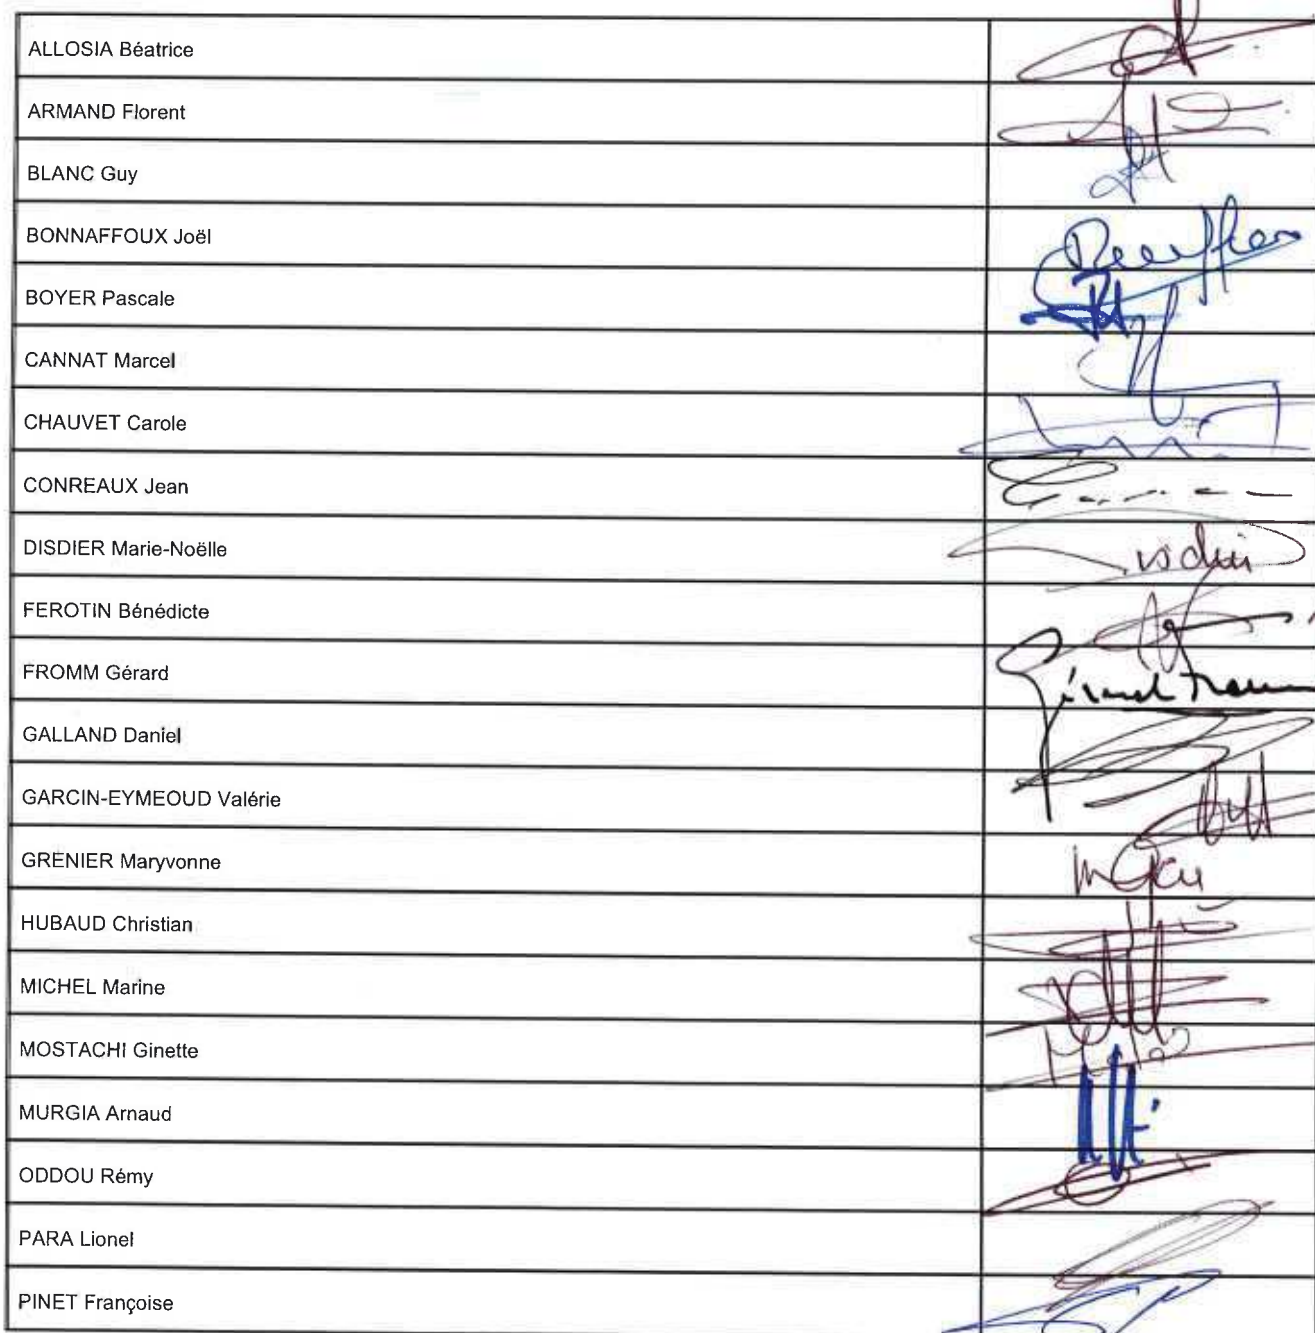 ALLOSIA Béatrice
ARMAND Florent
BLANC Guy
BONNAFFOUX Joël
BOYER Pascale
CANNAT Marcel
CHAUVET Carole
CONREAUX Jean
DISDIER Marie-Noëlle
FEROTIN Bénédicte
FROMM Gérard
Gérard Fromm
GALLAND Daniel
GARCIN-EYMEOUD Valérie
GRENIER Maryvonne
HUBAUD Christian
MICHEL Marine
MOSTACHI Ginette
MURGIA Arnaud
ODDOU Rémy
PARA Lionel
PINET Françoise